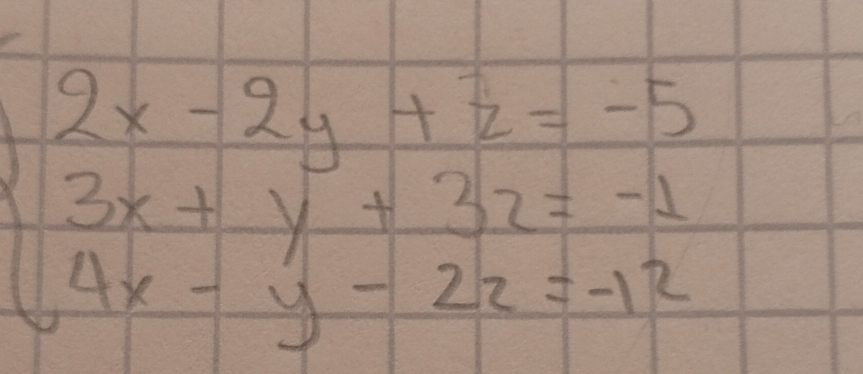 2x - 2y + z = -5
3x + y + 3z = -1
4x - y - 2z = -12